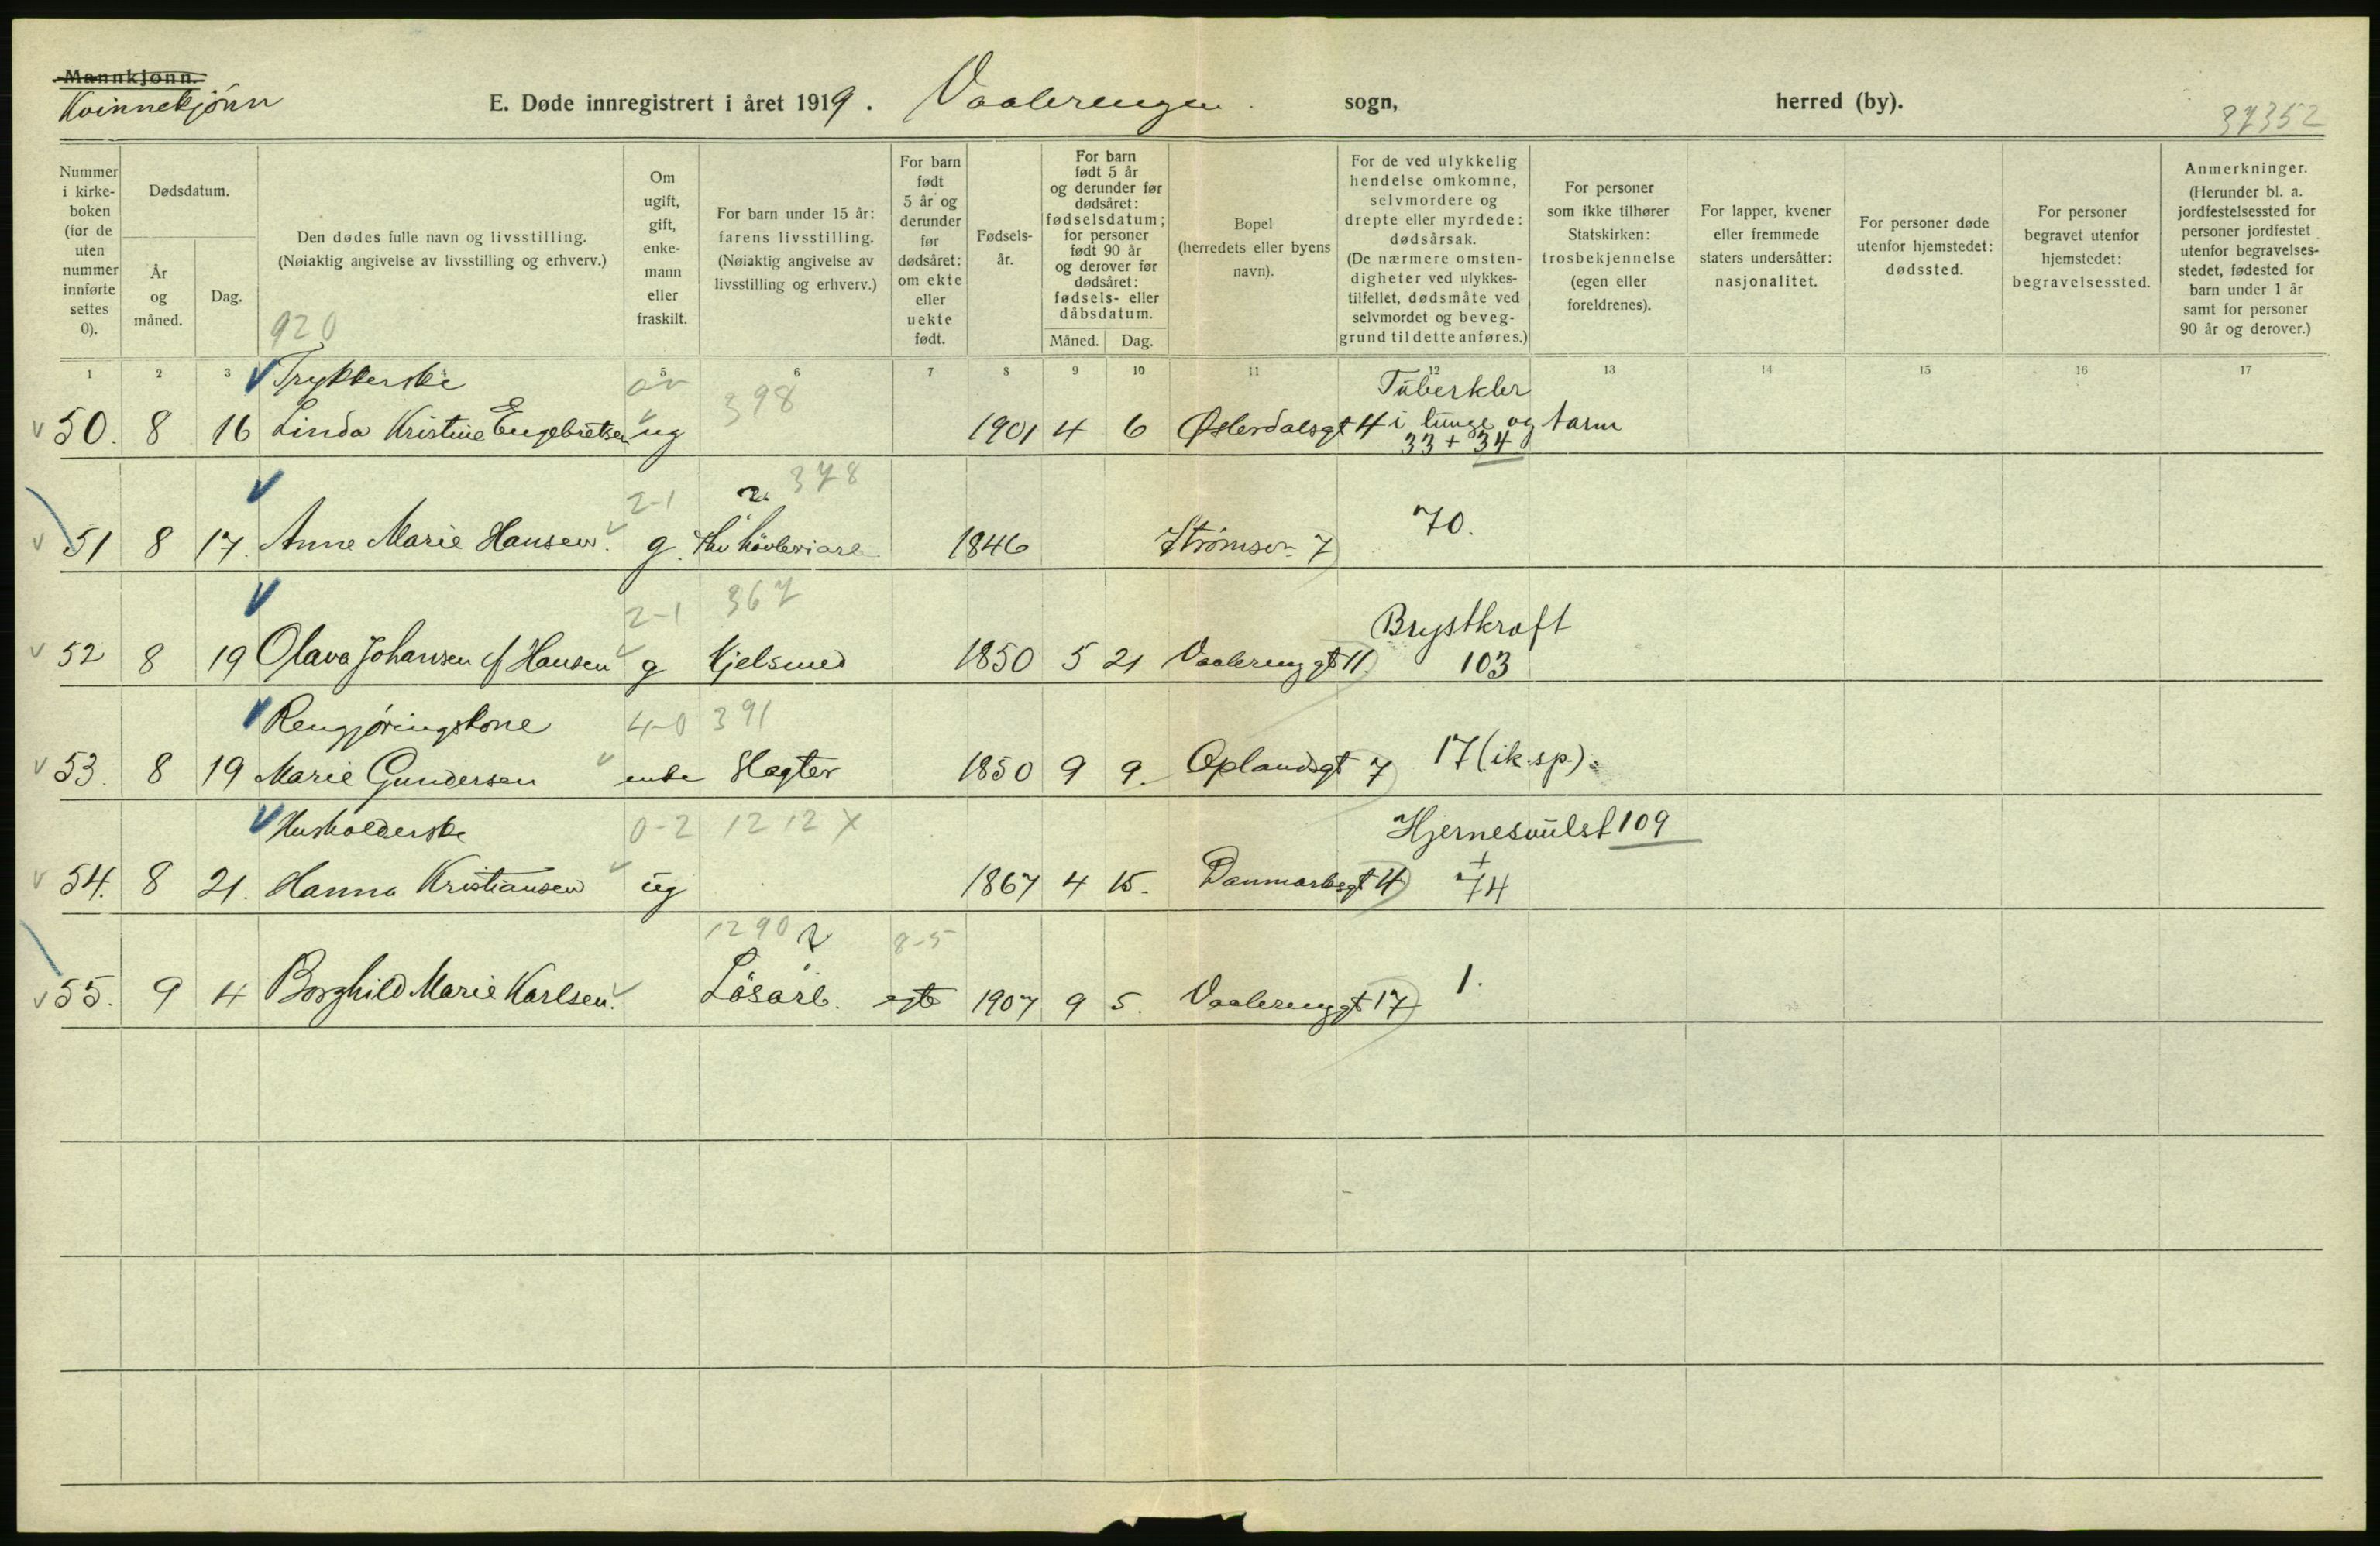 Mannkjønn.
Kvinnekjönn
E. Døde innregistrert i året 1919. Vaalerengen sogn, herred (by).
37352
Nummer i kirkeboken (for de uten nummer innførte settes 0).
Dødsdatum.
År og måned.
Dag.
Den dødes fulle navn og livsstilling.
(Nøiaktig angivelse av livsstilling og erhverv.)
920
Om ugift, gift, enkemann eller fraskilt.
For barn under 15 år: farens livsstilling.
(Nøiaktig angivelse av livsstilling og erhverv.)
For barn født 5 år og derunder før dødsåret: om ekte eller uekte født.
Fødselsår.
For barn født 5 år og derunder før dødsåret: fødselsdatum; for personer født 90 år og derover før dødsåret: fødsels- eller dåbsdatum.
Måned. Dag.
Bopel (herredets eller byens navn).
For de ved ulykkelig hendelse omkomne, selvmordere og drepte eller myrdede: dødsårsak.
(De nærmere omstendigheter ved ulykkestilfellet, dødsmåte ved selvmordet og beveggrund til dette anføres.)
For personer som ikke tilhører Statskirken: trosbekjennelse (egen eller foreldrenes).
For lapper, kvener eller fremmede staters undersåtter: nasjonalitet.
For personer døde utenfor hjemstedet: dødssted.
For personer begravet utenfor hjemstedet: begravelsessted.
Anmerkninger.
(Herunder bl. a. jordfestelsessted for personer jordfestet utenfor begravelsesstedet, fødested for barn under 1 år samt for personer 90 år og derover.)
1 2 3 5 6 7 8 9 10 11 12 13 14 15 16 17
Trykkerske 398 Tuberkler
50. 8 16 Linda Kristine Engebretsen ug 1901 4 6 Østerdalsgt 4 i lunge og tarm
33 + 34
2-1 378
51 8 17. Anne Marie Hansen g. 1846 7 70.
2-1 367 Brystkraft
52 8 19 Olava Johansen f Hansen g Kjelsmed 1850 5 21 Vaalerenggt 11. 103
Rengjøringskone 4-0 391
53. 8 19 Marie Gundersen enke Slagter 1850 9 9. Oplandsgt 7 17 (ik. sp.)
Husholderske 0-2 1212 X Hjernesvulst 109
+
54. 8 21. Hanna Kristiansen ug 1867 4 15. Danmarksgt 4 74
1290 8-5
55. 9 4 Borghild Marie Karlsen. Lösarb. egte 1907 9 5. Vaalerenggt 17 1.